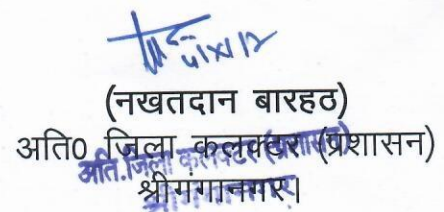 (नखतदान बारहठ)
अति0 जिला कलक्टर (प्रशासन)
अति.जिला कलक्टर (प्रशासन)
श्रीगंगानगर।
श्रीगंगानगर